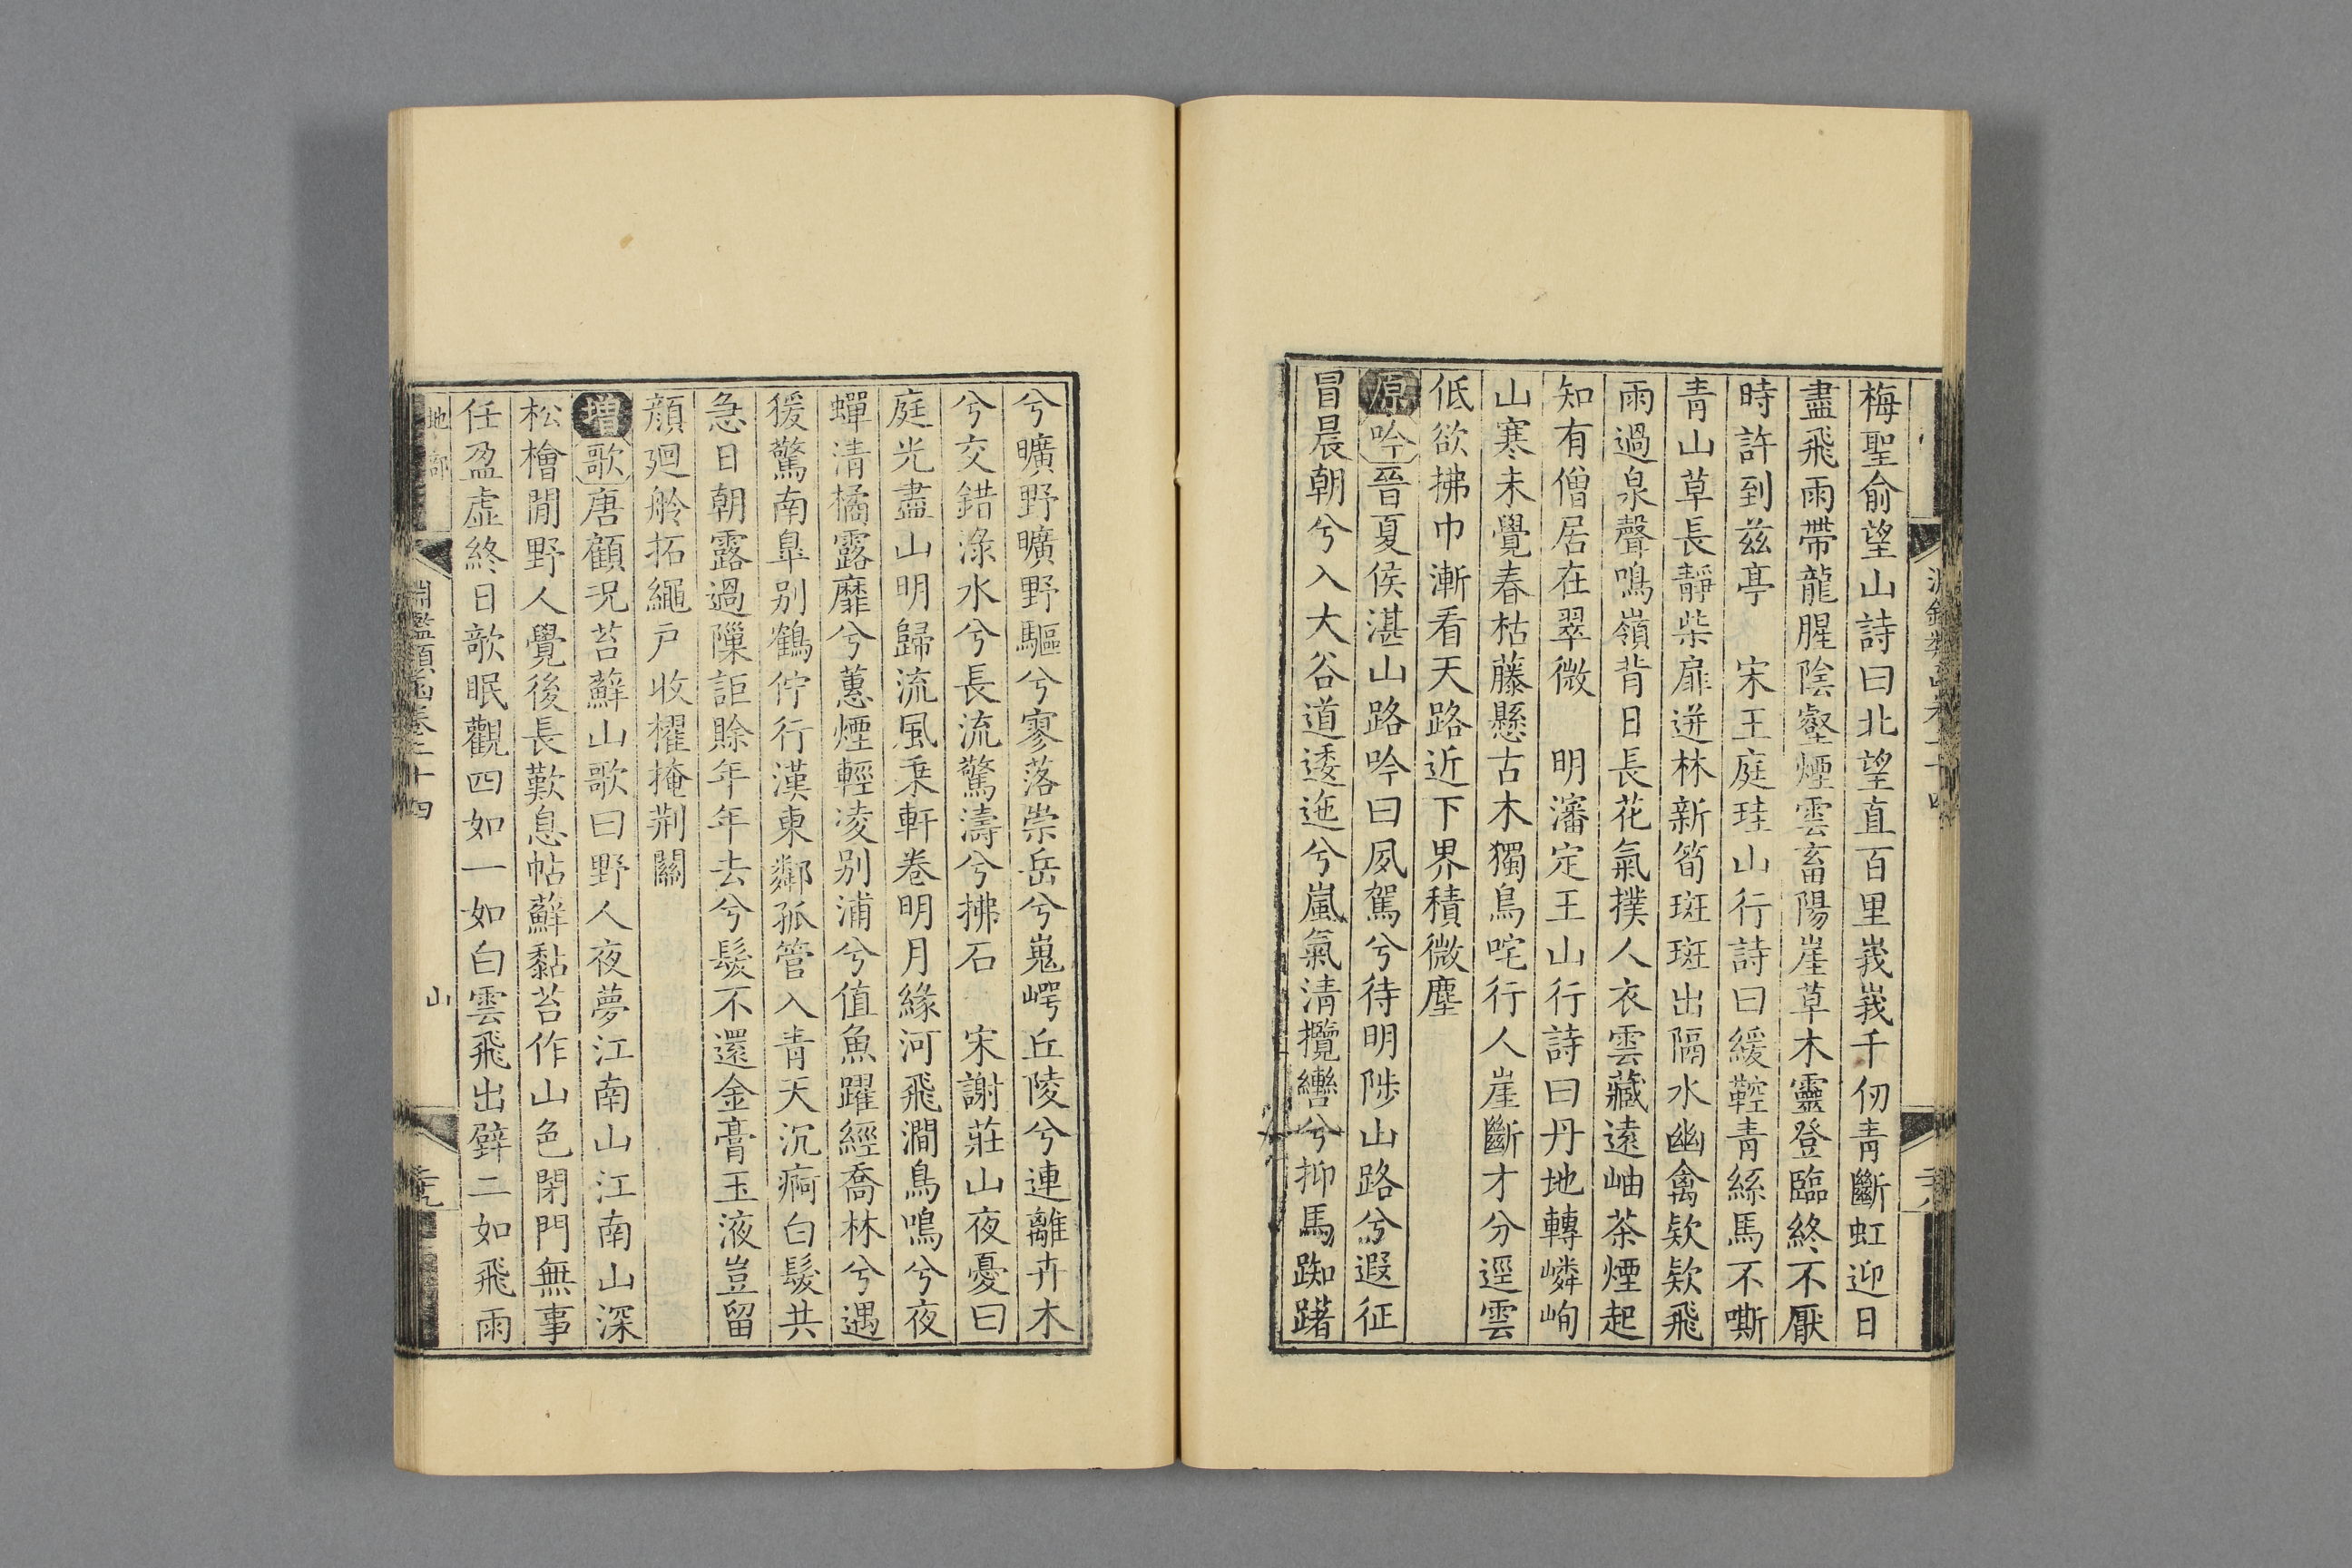 梅聖俞望山詩曰北望直百里峩峩千仞青斷虹迎日
盡飛雨帶龍腥陰壑煙雲畜陽崖草木靈登臨終不厭
時許到茲亭　宋王庭珪山行詩曰緩鞚青絲馬不嘶
青山草長靜柴扉迸林新筍斑斑出隔水幽禽欵欵飛
雨過泉聲鳴嶺背日長花氣撲人衣雲藏遠岫茶煙起
知有僧居在翠微　明瀋定王山行詩曰丹地轉嶙峋
山寒未覺春枯藤懸古木獨鳥咤行人崖斷才分逕雲
低欲拂巾漸看天路近下界積微塵
原吟晉夏侯湛山路吟曰夙駕兮待明陟山路兮遐征
冒晨朝兮入大谷道逶迤兮嵐氣清攬轡兮抑馬踟躇
兮曠野曠野驅兮寥落崇岳兮嵬崿丘陵兮連離卉木
兮交錯淥水兮長流驚濤兮拂石　宋謝莊山夜憂曰
庭光盡山明歸流風乘軒卷明月緣河飛澗鳥鳴兮夜
蟬清橘露靡兮蕙煙輕凌别浦兮值魚躍經喬林兮遇
猨驚南皐别鶴佇行漢東鄰孤管入青天沉痾白髮共
急日朝露過隟詎賒年年去兮髮不還金膏玉液豈留
顔廻舲拓繩戸收櫂掩荆關
增歌唐顧況苔蘚山歌曰野人夜夢江南山江南山深
松檜閒野人覺後長歎息帖蘚黏苔作山色閉門無事
任盈虛終日欹眠觀四如一如白雲飛出壁二如飛雨
地部　淵鑑類函卷二十四　山